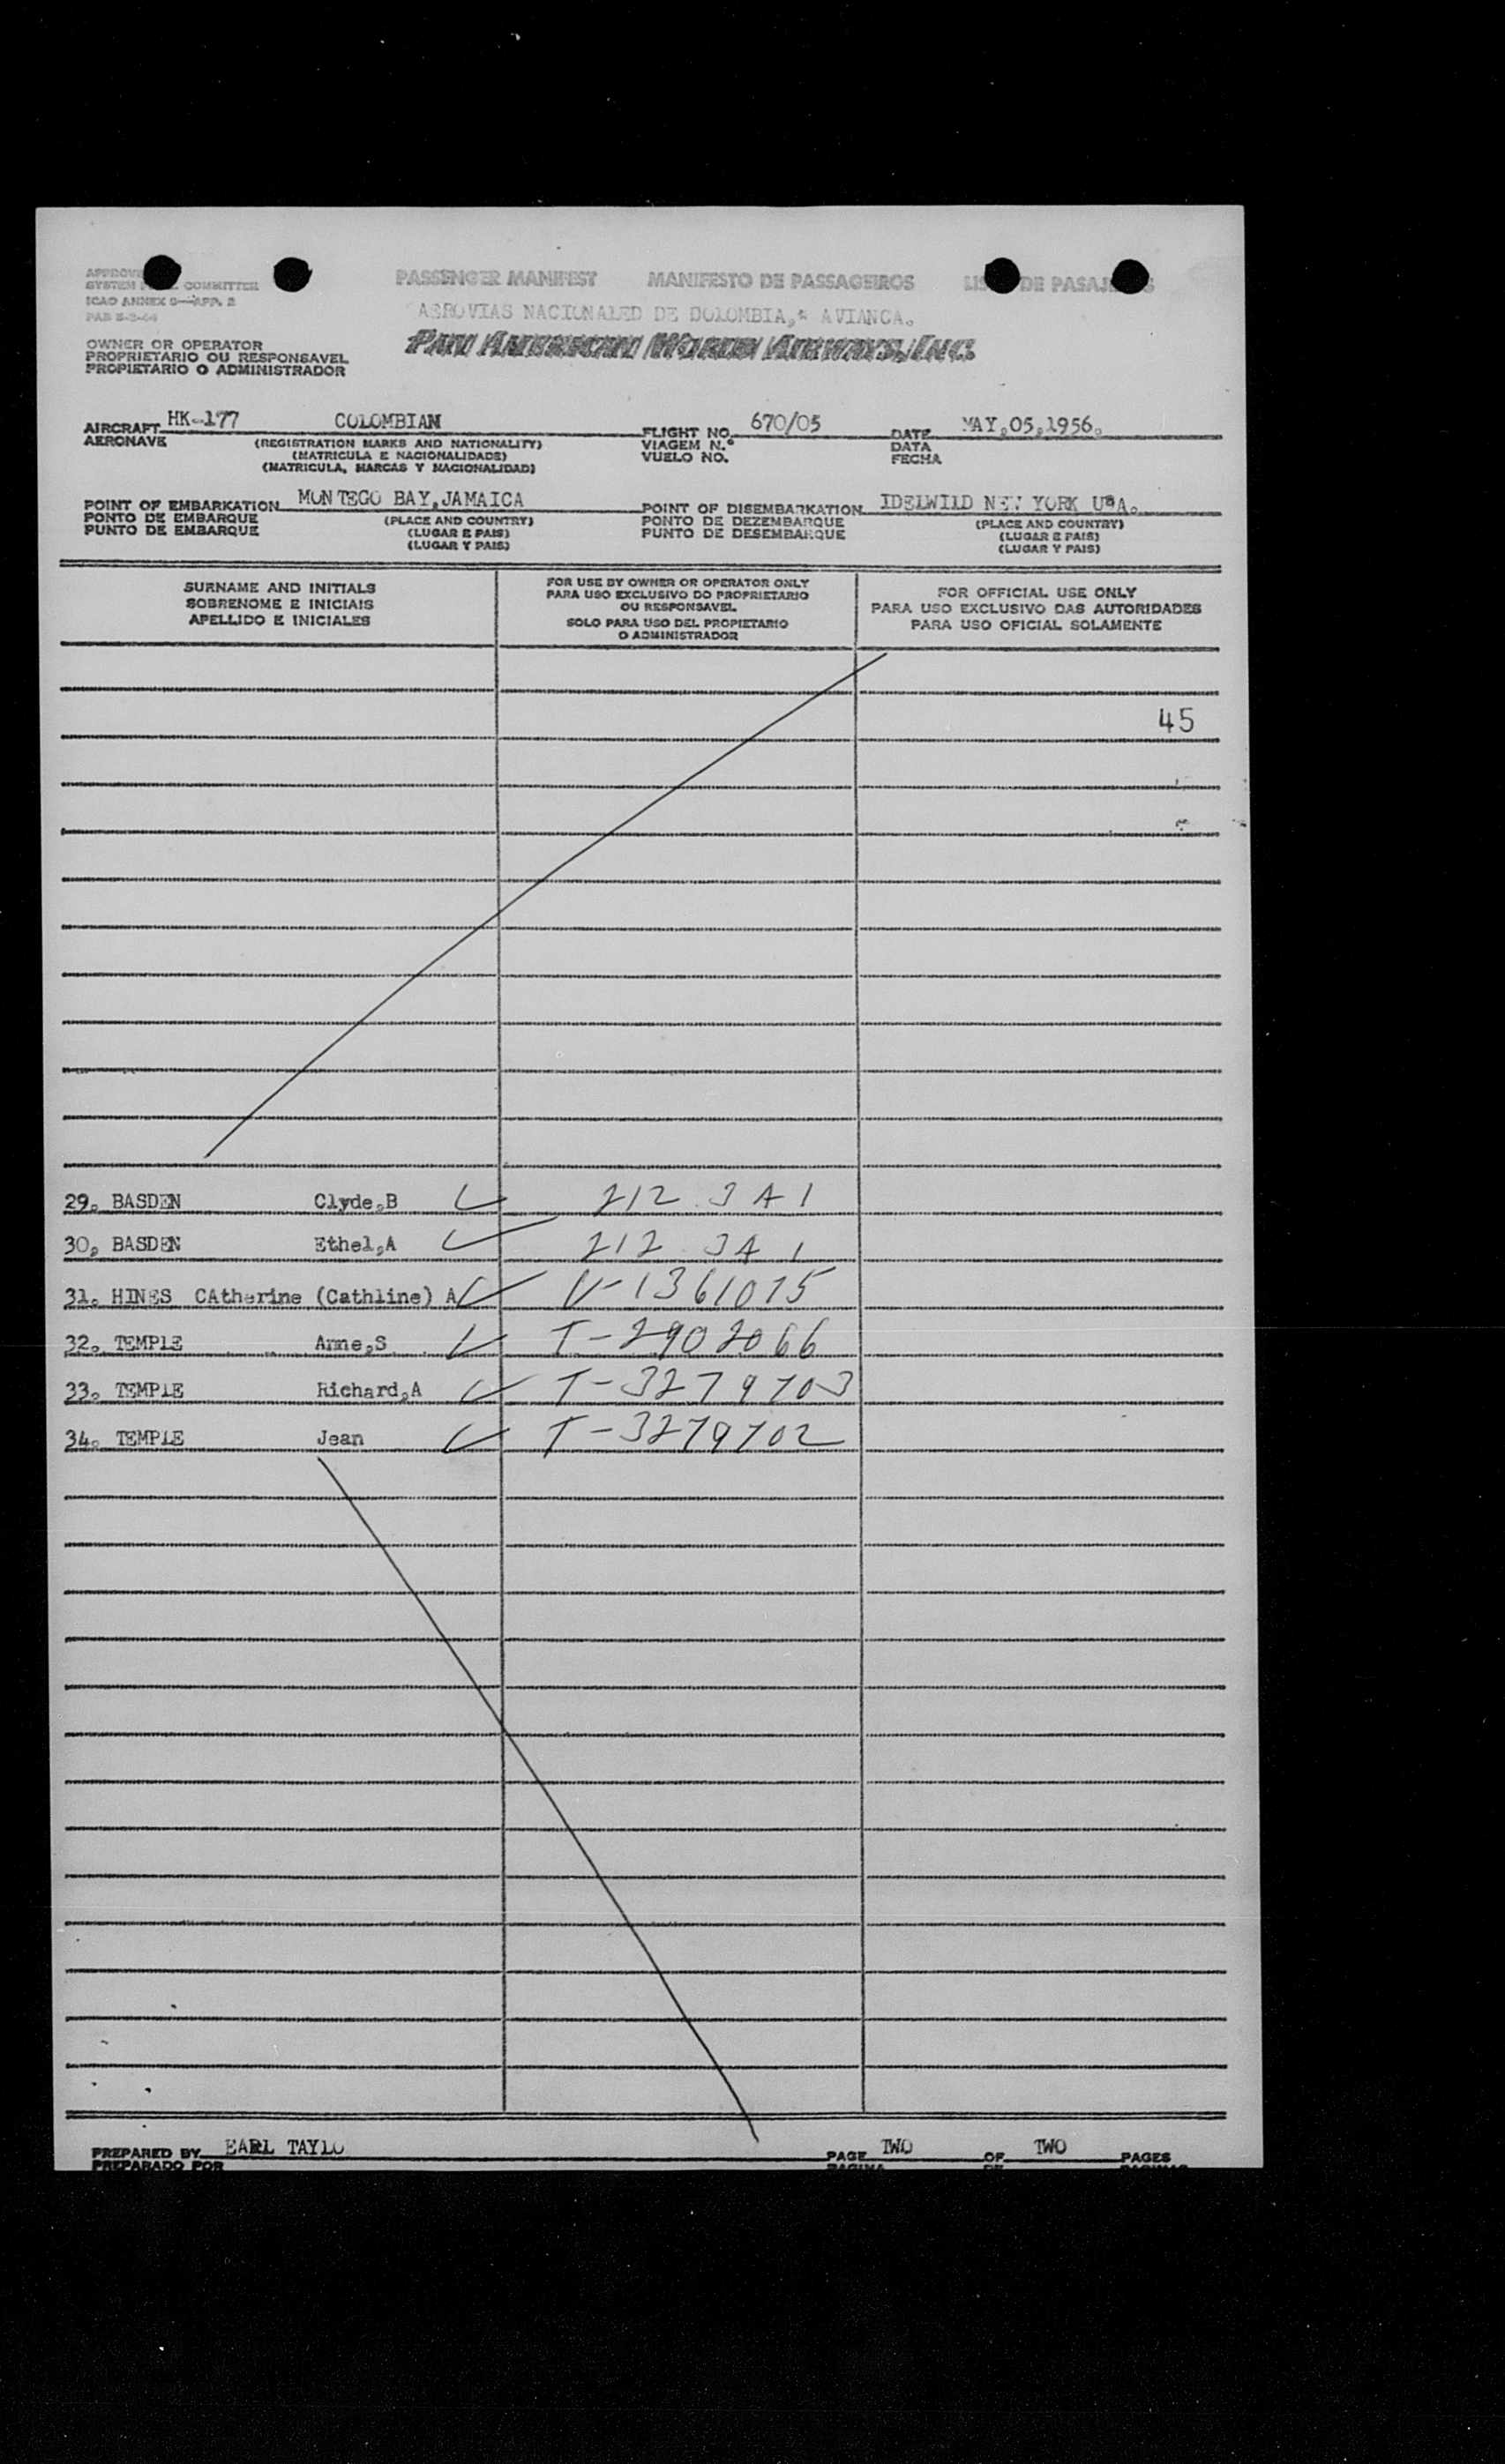 PASSENGER MANIFEST MANIFESTO DE PASSAGEIROS DE
SYSTEM COMMITTEE
ICAO ANNEX 9—APP. 2
AEROVIAS NACIONALED DE DOLOMBIA,* AVIANCA.
PAN AMERICAN WORLD AIRWAYS, INC.
OWNER OR OPERATOR
PROPRIETARIO OU RESPONSAVEL
PROPIETARIO O ADMINISTRADOR
AIRCRAFT HK-177 COLOMBIAN FLIGHT NO. 670/05 DATE MAY,05,1956.
AERONAVE (REGISTRATION MARKS AND NATIONALITY) VIAGEM N.º DATA
(MATRICULA E NACIONALIDADE) VUELO NO. FECHA
(MATRICULA, MARCAS Y NACIONALIDAD)
POINT OF EMBARKATION MONTEGO BAY,JAMAICA POINT OF DISEMBARKATION IDELWILD NEW YORK USA.
PONTO DE EMBARQUE (PLACE AND COUNTRY) PONTO DE DEZEMBARQUE (PLACE AND COUNTRY)
PUNTO DE EMBARQUE (LUGAR E PAIS) PUNTO DE DESEMBARQUE (LUGAR E PAIS)
(LUGAR Y PAIS) (LUGAR Y PAIS)
SURNAME AND INITIALS
SOBRENOME E INICIAIS
APELLIDO E INICIALES
FOR USE BY OWNER OR OPERATOR ONLY
PARA USO EXCLUSIVO DO PROPRIETARIO
OU RESPONSAVEL
SOLO PARA USO DEL PROPIETARIO
O ADMINISTRADOR
FOR OFFICIAL USE ONLY
PARA USO EXCLUSIVO DAS AUTORIDADES
PARA USO OFICIAL SOLAMENTE
45
29. BASDEN Clyde,B 212 3 A 1
30, BASDEN Ethel,A 212 3 A 1
31. HINES CAtherine (Cathline) A V-1361075
32. TEMPLE Anne,S T-2902066
33. TEMPLE Richard,A T-3279703
34. TEMPLE Jean T-3279702
PREPARED BY EARL TAYLO PAGE TWO OF TWO PAGES
PREPARADO POR